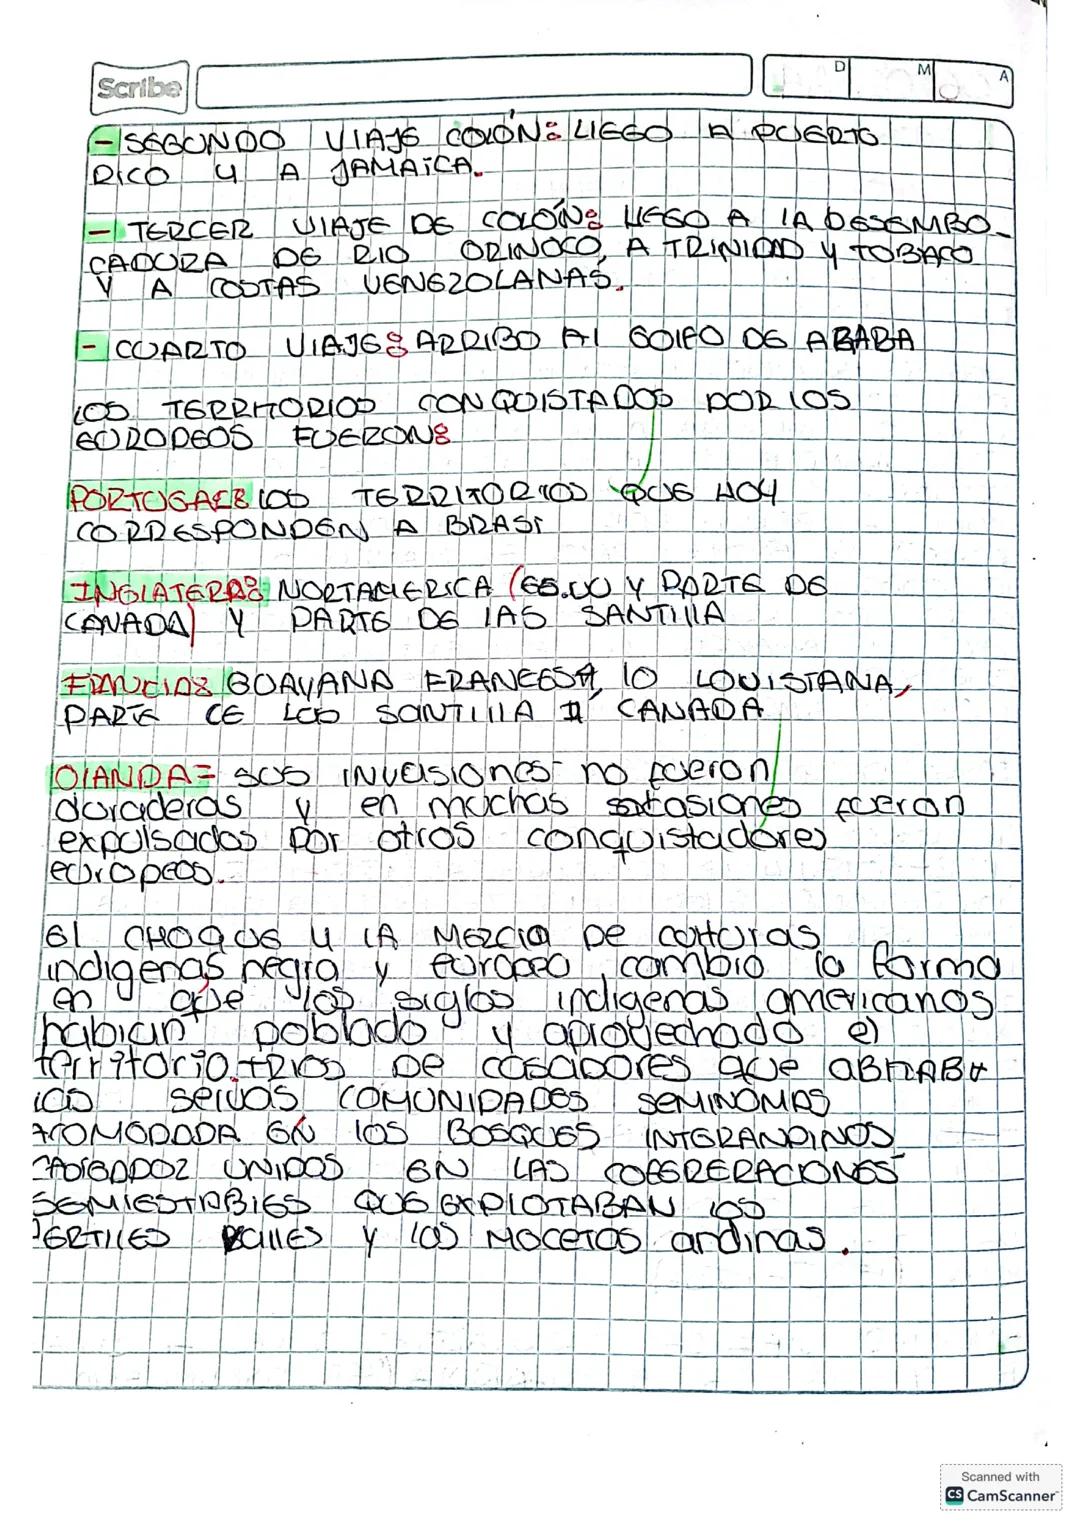 Scribe
D M A
- SEGUNDO VIAJE COLÓN: LLEGO A PUERTO
RICO Y A JAMAICA.
- TERCER VIAJE DE COLÓN: LLEGO A LA DESEMBO_
CADURA DE RIO ORINOCO, A TRINIDAD Y TOBAGO
Y A COSTAS VENEZOLANAS.
- CUARTO VIAJE: ARRIBO AL GOLFO DE ABABA
LOS TERRITORIOS CONQUISTADOS POR LOS
EUROPEOS FUERON:
PORTUGAL: LOS TERRITORIOS QUE HOY
CORRESPONDEN A BRASI
INGLATERA: NORTAMERICA (EE.UU Y PARTE DE
CANADA) Y PARTE DE LAS SANTILLA
FRANCIA: GUAYANA FRANCESA, LO LOUISTANA,
PARTE CE LOS SANTILLA CANADA
OLANDA= SUS INVASIONES no fueron
duraderas y en muchas fueron
expulsadas por otros conquistadores
europeos.
El CHOQUE Y LA MEZCLA DE culturas
indigenas negra y europea, cambio la forma
en que los siglos indigenas americanos
habian poblado y aprovechado el
territorio. TRIOS DE casadores que
las selvas COMUNIDADES SEMINOMAS
ACOMODADA EN LOS BOSQUES INTERANDINOS
UNIDOS EN LAS
SEMIESTABLES QUE EXPLOTABAN LOS
FERTILES VALLES Y LOS MOCETAS andinas.
Scanned with
CS CamScanner